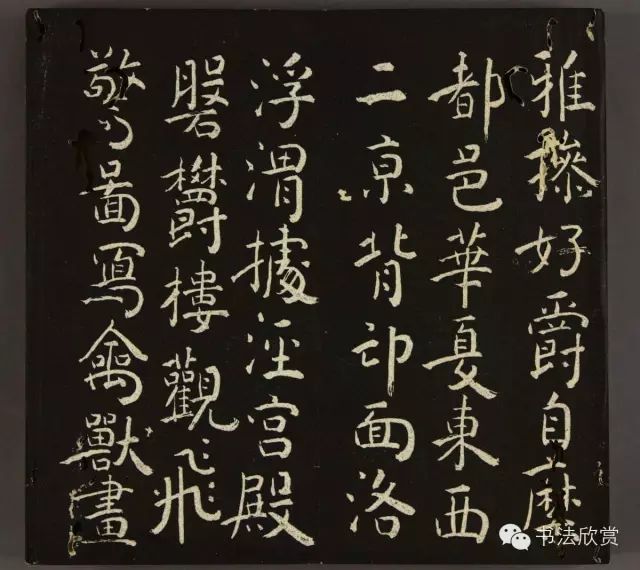 雅操好爵自縻
都邑華夏東西
二京背邙面洛
浮渭據涇宮殿
磐欝樓觀飛
驚圖寫禽獸畫
书法欣赏